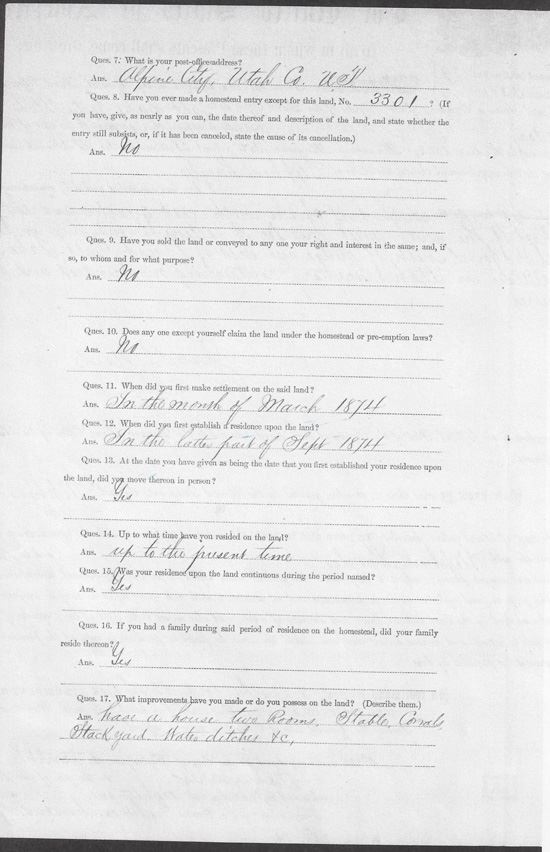 Ques. 7. What is your post-office address?
Ans. Alpine City, Utah Co. U T
Ques. 8. Have you ever made a homestead entry except for this land, No. 3301 ? (If
you have, give, as nearly as you can, the date thereof and description of the land, and state whether the
entry still subsists, or, if it has been canceled, state the cause of its cancellation.)
Ans. No
Ques. 9. Have you sold the land or conveyed to any one your right and interest in the same; and, if
so, to whom and for what purpose?
Ans. No
Ques. 10. Does any one except yourself claim the land under the homestead or pre-emption laws?
Ans. No
Ques. 11. When did you first make settlement on the said land?
Ans. In the month of March 1874
Ques. 12. When did you first establish a residence upon the land?
Ans. In the latter part of Sept 1874
Ques. 13. At the date you have given as being the date that you first established your residence upon
the land, did you move thereon in person?
Ans. Yes
Ques. 14. Up to what time have you resided on the land?
Ans. up to the present time
Ques. 15. Was your residence upon the land continuous during the period named?
Ans. Yes
Ques. 16. If you had a family during said period of residence on the homestead, did your family
reside thereon?
Ans. Yes
Ques. 17. What improvements have you made or do you possess on the land? (Describe them.)
Ans. have a house two Rooms, Stable, Corrals,
Stack yard Water ditches &c,